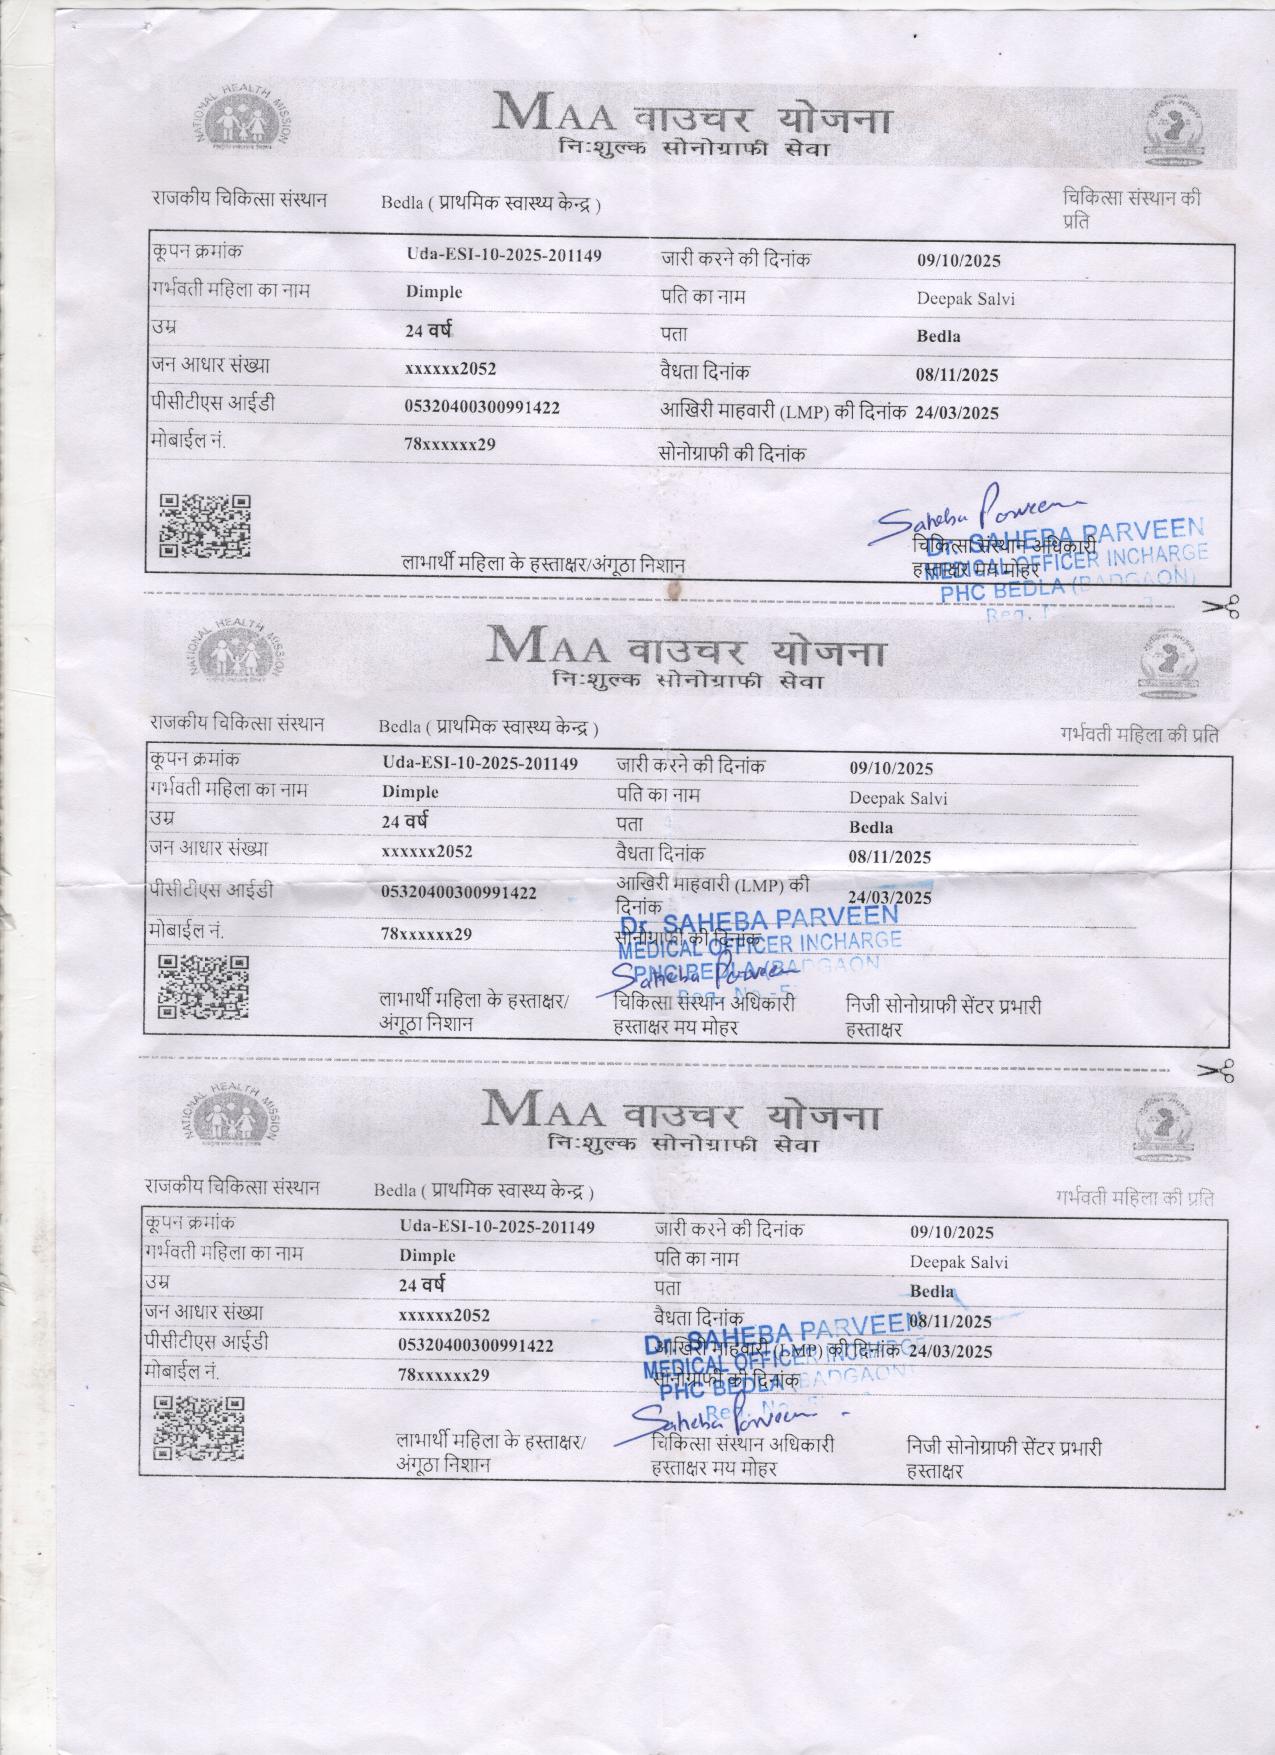 NATIONAL HEALTH MISSION
MAA वाउचर योजना
निःशुल्क सोनोग्राफी सेवा
राजकीय चिकित्सा संस्थान Bedla ( प्राथमिक स्वास्थ्य केन्द्र ) चिकित्सा संस्थान की
प्रति
कूपन क्रमांक Uda-ESI-10-2025-201149 जारी करने की दिनांक 09/10/2025
गर्भवती महिला का नाम Dimple पति का नाम Deepak Salvi
उम्र 24 वर्ष पता Bedla
जन आधार संख्या xxxxxx2052 वैधता दिनांक 08/11/2025
पीसीटीएस आईडी 05320400300991422 आखिरी माहवारी (LMP) की दिनांक 24/03/2025
मोबाईल नं. 78xxxxxx29 सोनोग्राफी की दिनांक
Saheba Parveen
Dr. SAHEBA PARVEEN
चिकित्सा संस्थान अधिकारी
MEDICAL OFFICER INCHARGE
लाभार्थी महिला के हस्ताक्षर/अंगूठा निशान हस्ताक्षर मय मोहर
PHC BEDLA (BADGAON)
Reg.
NATIONAL HEALTH MISSION
MAA वाउचर योजना
निःशुल्क सोनोग्राफी सेवा
राजकीय चिकित्सा संस्थान Bedla ( प्राथमिक स्वास्थ्य केन्द्र ) गर्भवती महिला की प्रति
कूपन क्रमांक Uda-ESI-10-2025-201149 जारी करने की दिनांक 09/10/2025
गर्भवती महिला का नाम Dimple पति का नाम Deepak Salvi
उम्र 24 वर्ष पता Bedla
जन आधार संख्या xxxxxx2052 वैधता दिनांक 08/11/2025
पीसीटीएस आईडी 05320400300991422 आखिरी माहवारी (LMP) की 24/03/2025
दिनांक
Dr. SAHEBA PARVEEN
मोबाईल नं. 78xxxxxx29 सोनोग्राफी की दिनांक
MEDICAL OFFICER INCHARGE
BEDLA (BADGAON
Saheba Parveen
Reg. No.-5
लाभार्थी महिला के हस्ताक्षर/ चिकित्सा संस्थान अधिकारी निजी सोनोग्राफी सेंटर प्रभारी
अंगूठा निशान हस्ताक्षर मय मोहर हस्ताक्षर
NATIONAL HEALTH MISSION
MAA वाउचर योजना
निःशुल्क सोनोग्राफी सेवा
राजकीय चिकित्सा संस्थान Bedla ( प्राथमिक स्वास्थ्य केन्द्र ) गर्भवती महिला की प्रति
कूपन क्रमांक Uda-ESI-10-2025-201149 जारी करने की दिनांक 09/10/2025
गर्भवती महिला का नाम Dimple पति का नाम Deepak Salvi
उम्र 24 वर्ष पता Bedla
जन आधार संख्या xxxxxx2052 वैधता दिनांक 08/11/2025
Dr. SAHEBA PARVEEN
पीसीटीएस आईडी 05320400300991422 आखिरी माहवारी (LMP) की दिनांक 24/03/2025
MEDICAL OFFICER INCHARGE
मोबाईल नं. 78xxxxxx29 सोनोग्राफी की दिनांक
PHC BEDLA (BADGAON)
Reg. No.
Saheba Parveen
लाभार्थी महिला के हस्ताक्षर/ चिकित्सा संस्थान अधिकारी निजी सोनोग्राफी सेंटर प्रभारी
अंगूठा निशान हस्ताक्षर मय मोहर हस्ताक्षर